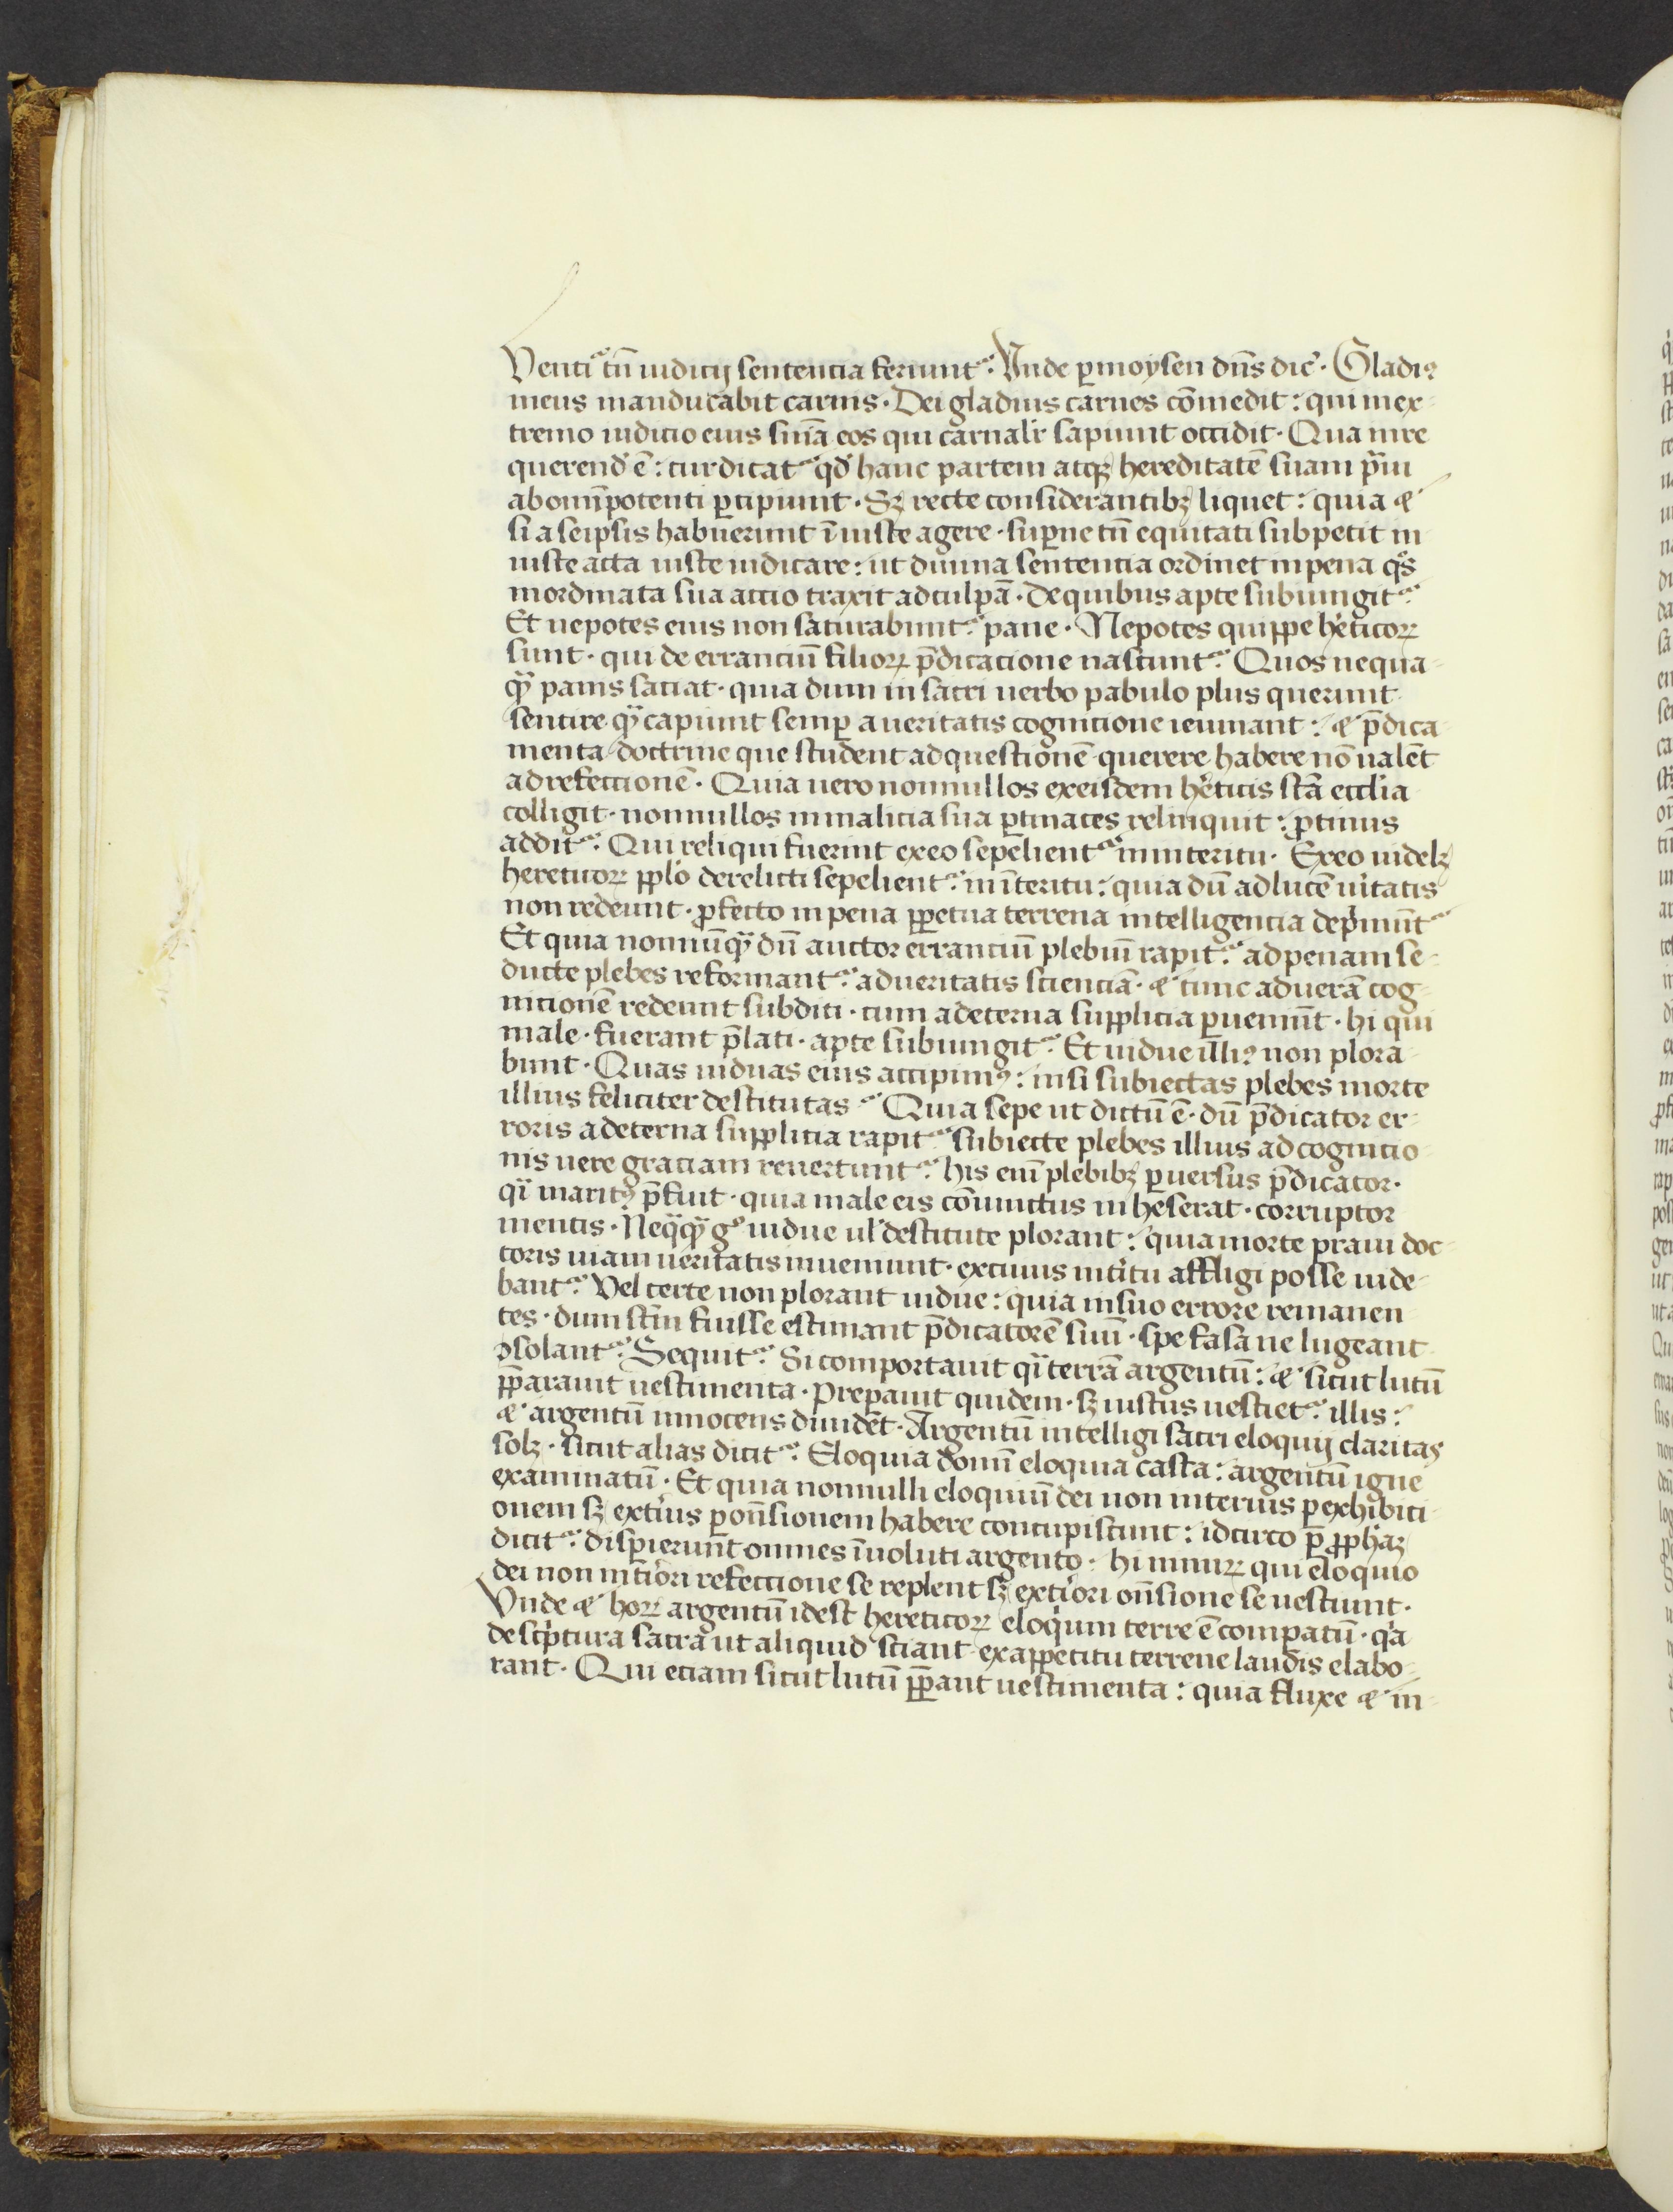 Venti᷑ tn̄ iudicij sentencia feriunt᷑. Vnde ꝑ moysen dn̄s dic̄. Gladiꝰ
meus manducabit carnis. Dei gladius carnes cōmedit: qui in ex-
tremo iudicio eius sn̄ıā eos qui carnalr̄ sapiunt occidit. Qua in re
querend̄ ē: cur dicat᷑ qd̄ hanc partem atqꝫ hereditatē suam pͣui
ab omīpotenti ꝑcipiunt. Sꝫ recte considerantibꝫ liquet: quia &
si a seipsis habuerunt īiuste agere. suꝑne tn̄ equitati subpetit in
iuste acta iuste iudicare: ut diuina sentencia ordinet in pena qͦs
inordinata sua accio traxit ad culpā. De quibus apte subiungit᷑
Et nepotes eius non saturabunt᷑ pane. Nepotes quippe he͛ticoꝝ
sunt. qui de errancium filioꝝ p̄dicacione nascunt᷑ Quos nequa-
qͣ panis saciat. quia dum in sacri uerbo pabulo plus querunt
sentire qͣ capiunt semꝑ a ueritatis cognicione ieiunant: & p̄dica
menta doctrine que student ad questionē querere habere nō ualēt
ad refeccionē. Quia uero nonnullos ex eisdem he͛ticis scā eccl̄ia
colligit. nonnullos in malicia sua ꝑtinaces relinquit: ꝓtinus
addit᷑. Qui reliqui fuerint ex eo sepelient᷑ in interitu. Ex eo uidelꝫ
hereticoꝝ pplo derelicti sepelient᷑ in īteritu: quia dū ad lucē uͥtatis
non redeunt. ꝓfecto in pena ꝑpetua terrena intelligencia depͥmūt᷑
Et quia nonnūqͣ dū auctor errancium plebium rapit᷑ ad penam se-
ducte plebes reformant᷑ ad ueritatis scienciā. & tunc ad uerā cog-
nicionē redeunt subditi. cum ad eterna supplicia ꝑueniūt. hi qui
male. fuerant p̄lati. apte subiungit᷑. Et uidue illiꝰ non plora
bunt. Quas uiduas eius accipimꝰ: nisi subiectas plebes morte
illius feliciter destitutas᷑ Quia sepe ut dictū ē. dū p̄dicator er-
roris ad eterna supplicia rapit᷑ subiecte plebes illius ad cognicio-
nis uere graciam reuertunt᷑. his enī plebibꝫ ꝑuersus p̄dicator.
qͥ maritꝰ p̄fuit. quia male eis cōiunctus inheserat. corruptor
mentis. Neqͣqͣ gͦ uidue ul̄ destitute plorant: quia morte praui doc-
toris uiam ueritatis inueniunt. ex cuius intͥtu affligi posse uide-
bant᷑. Vel certe non plorant uidue: quia in suo errore remanen
tes. dum scm̄ fuisse estimant p̄dicatorē suū. spe falsa ne lugeant
ꝯsolant᷑. Sequit᷑. Si comportauit qͣ terrā argentū: & sicut lutū
pꝑarauit uestimenta. Preꝑauit quidem. sꝫ iustus uestiet᷑ illis:
& argentū innocens diuidet. Argentū intelligi sacri eloquij claritas
solꝫ. sicut alias dicit᷑. Eloquia domī eloquia casta: argentū igne
examinatū. Et quia nonnulli eloquiū dei non interius ꝑ exhibici
onem sꝫ extͥus ꝑ on̄sionem habere concupiscunt: idcirco ꝑ pphaꝫ
dicit᷑. disꝑierunt omnes īuoluti argento. hi nimiꝝ qui eloquio
dei non intͥori refeccione se replent sꝫ extͥori on̄sione se uestiunt.
Vnde & hoꝝ argentū idest hereticoꝝ eloqͥum terre ē comꝑatū. qͥa
de scͥptura sacra ut aliquid sciant ex appetitu terrene laudis elabo-
rant. Qui etiam sicut lutū pꝑant uestimenta: quia fluxe & in-